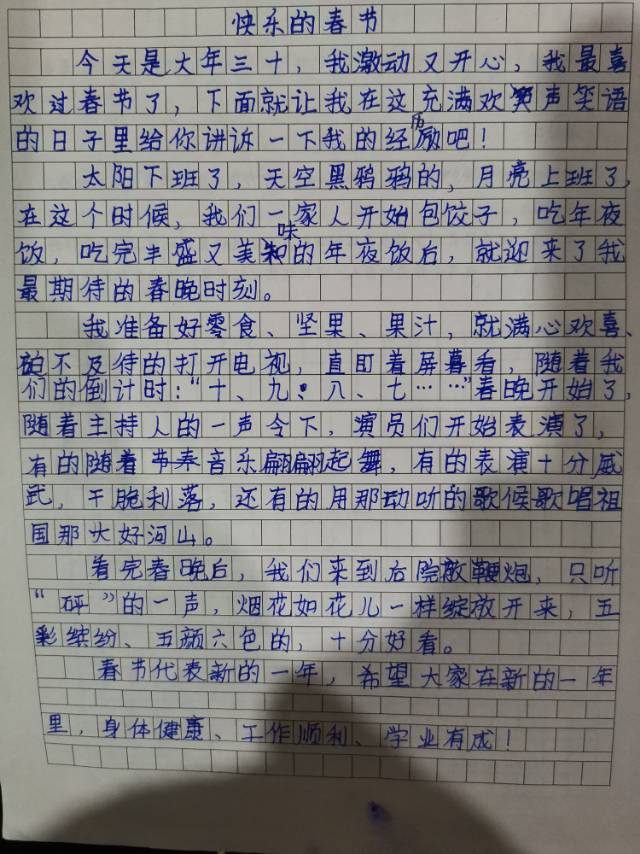 快乐的春节
今天是大年三十，我激动又开心，我最喜
欢过春节了，下面就让我在这充满欢笑声笑语
的日子里给你讲诉一下我的经历吧！
太阳下班了，天空黑鸦鸦的，月亮上班了，
在这个时候，我们一家人开始包饺子，吃年夜
饭，吃完丰盛又美味的年夜饭后，就迎来了我
最期待的春晚时刻。
我准备好零食、坚果、果汁，就满心欢喜、
迫不及待的打开电视，直盯着屏幕看，随着我
们的倒计时：“十、九、八、七……”春晚开始了，
随着主持人的一声令下，演员们开始表演了，
有的随着节奏音乐翩翩起舞，有的表演十分威
武，干脆利落，还有的用那动听的歌候歌唱祖
国那大好河山。
看完春晚后，我们来到后院放鞭炮，只听
“砰”的一声，烟花如花儿一样绽放开来，五
彩缤纷、五颜六色的，十分好看。
春节代表新的一年，希望大家在新的一年
里，身体健康、工作顺利、学业有成！